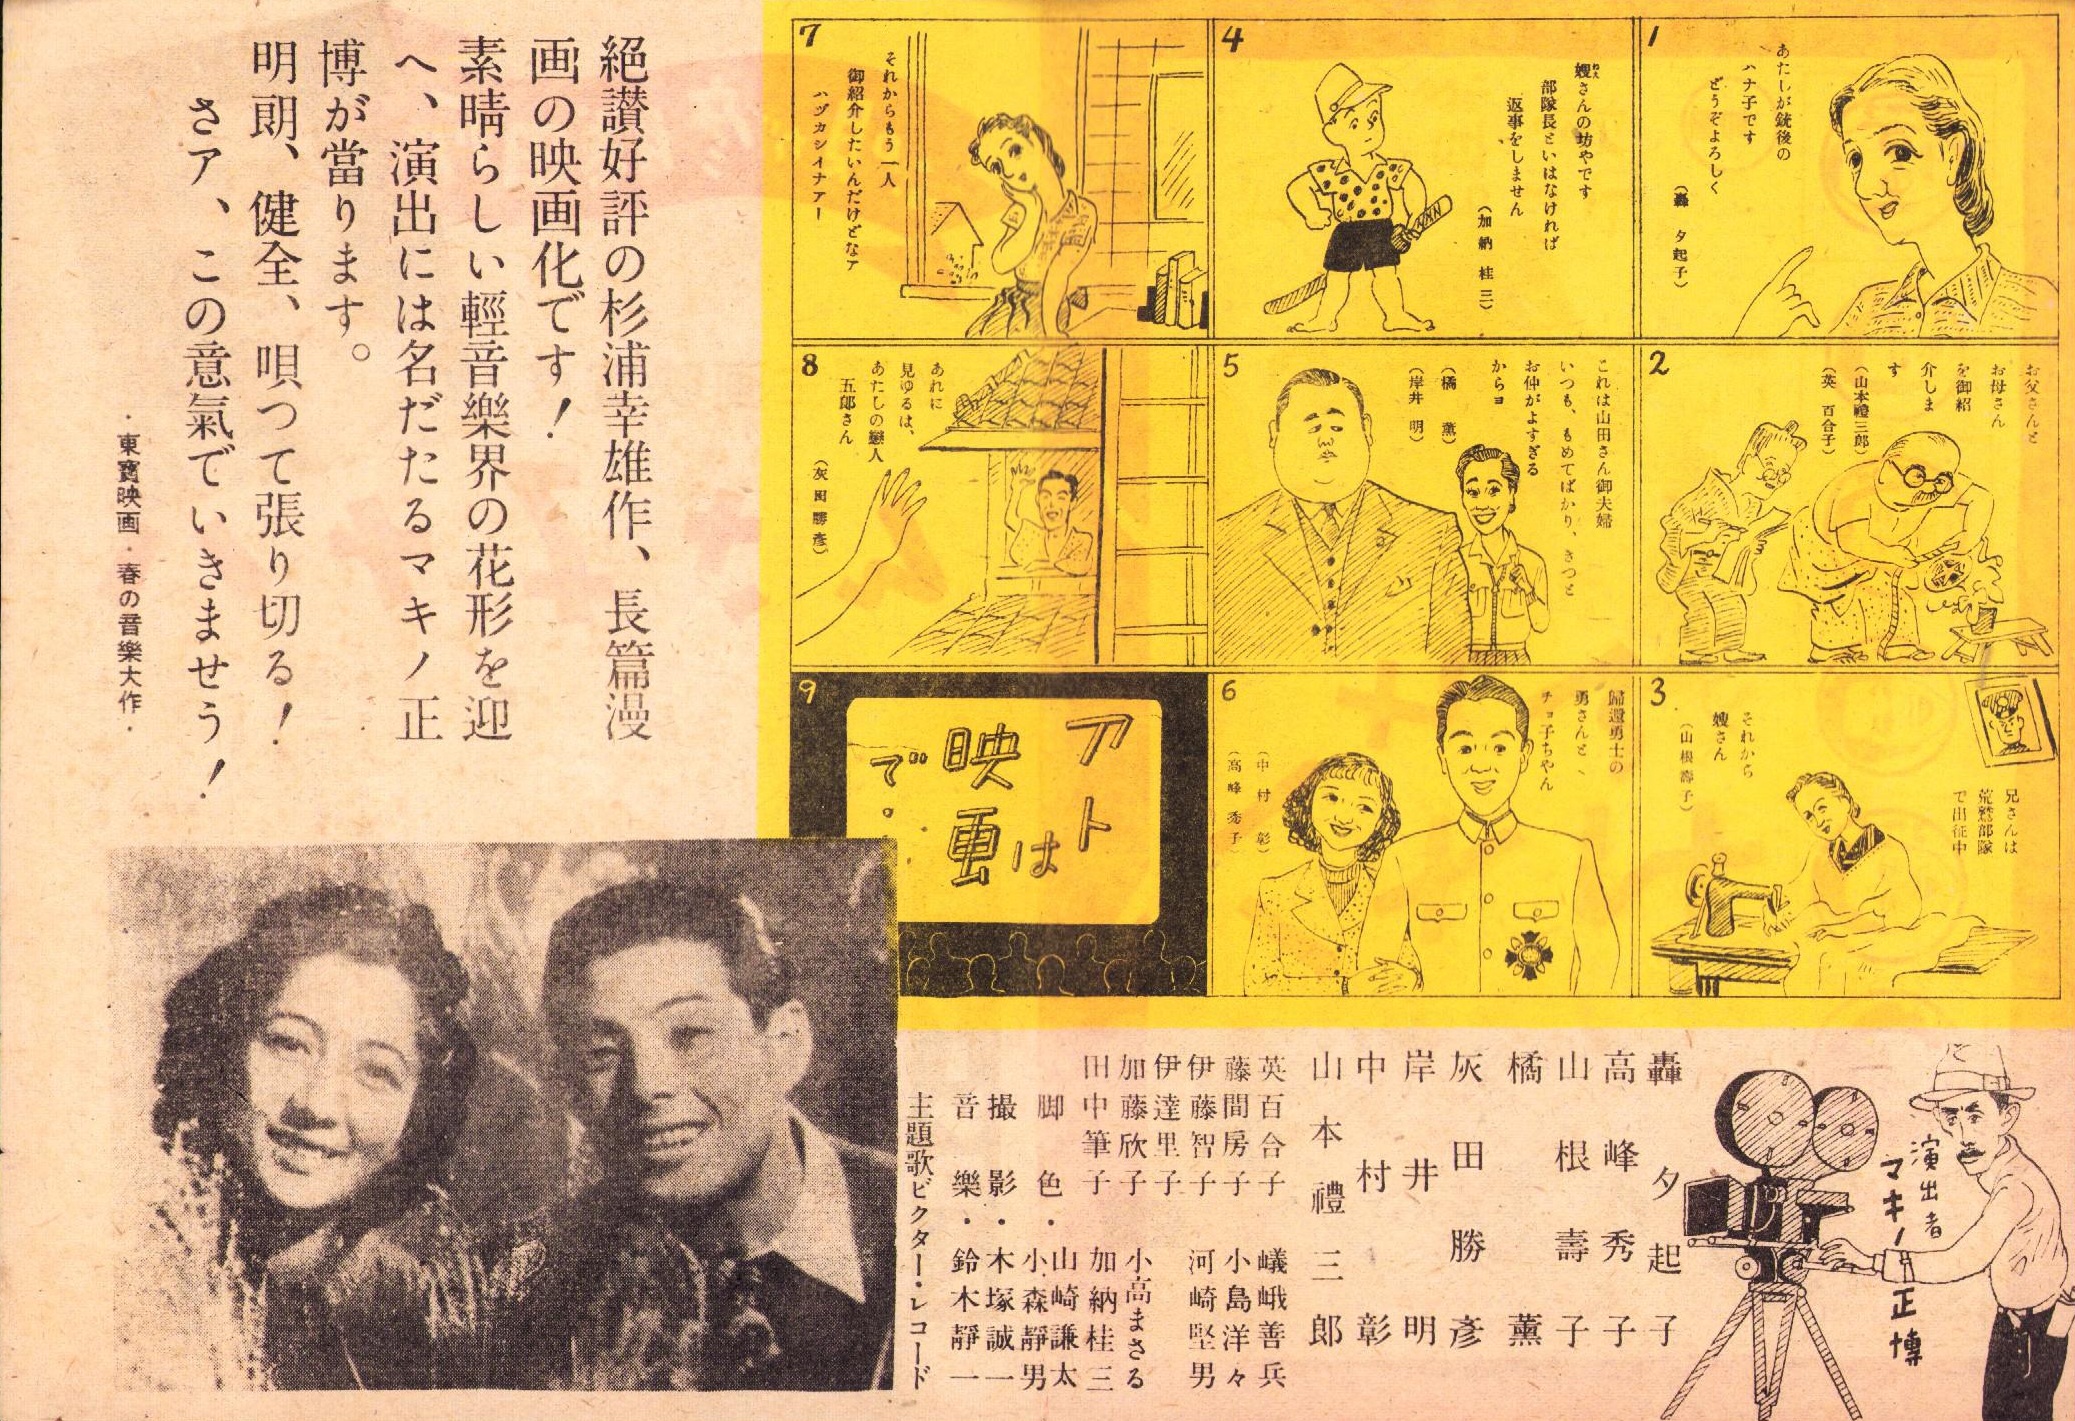 1
あたしが銃後の
ハナ子です
どうぞよろしく
（轟　夕起子）
2
お父さんと
お母さん
を御紹
介しま
す
（山本禮三郎）
（英　百合子）
3
兄さんは
荒鷲部隊
で出征中
それから
嫂さん
（山根壽子）
4
嫂さんの坊やです
ねえ
部隊長といはなければ
返事をしません
（加納　桂三）
5
これは山田さん御夫婦
いつも、もめてばかり、きつと
お仲がよすぎる
からヨ
（橘　薫）
（岸井　明）
6
歸還勇士の
勇さんと、
チヨ子ちやん
（中村　彰）
（高峰秀子）
7
それからもう一人
御紹介したいんだけどなア
ハヅカシイナアー
8
あれに
見ゆるは、
あたしの戀人
五郎さん
（灰田勝彦）
9
アトは
映画
で。
絕讃好評の杉浦幸雄作、長篇漫
画の映画化です！
素晴らしい輕音樂界の花形を迎
へ、演出には名だたるマキノ正
博が當ります。
明朗、健全、唄つて張り切る！
さア、この意氣でいきませう！
・東寶映画・春の音樂大作・
演出者
マキノ正博
轟夕起子
高峰秀子
山根壽子
橘薫
灰田勝彦
岸井明
中村彰
山本禮三郎
英百合子
藤間房子
伊藤智子
伊達里子
加藤欣子
田中筆子
嶬峨善兵
小島洋々
河崎堅男
小高まさる
加納桂三
脚色・山崎謙太
小森靜男
撮影・木塚誠一
音樂・鈴木靜一
主題歌ビクター・レコード